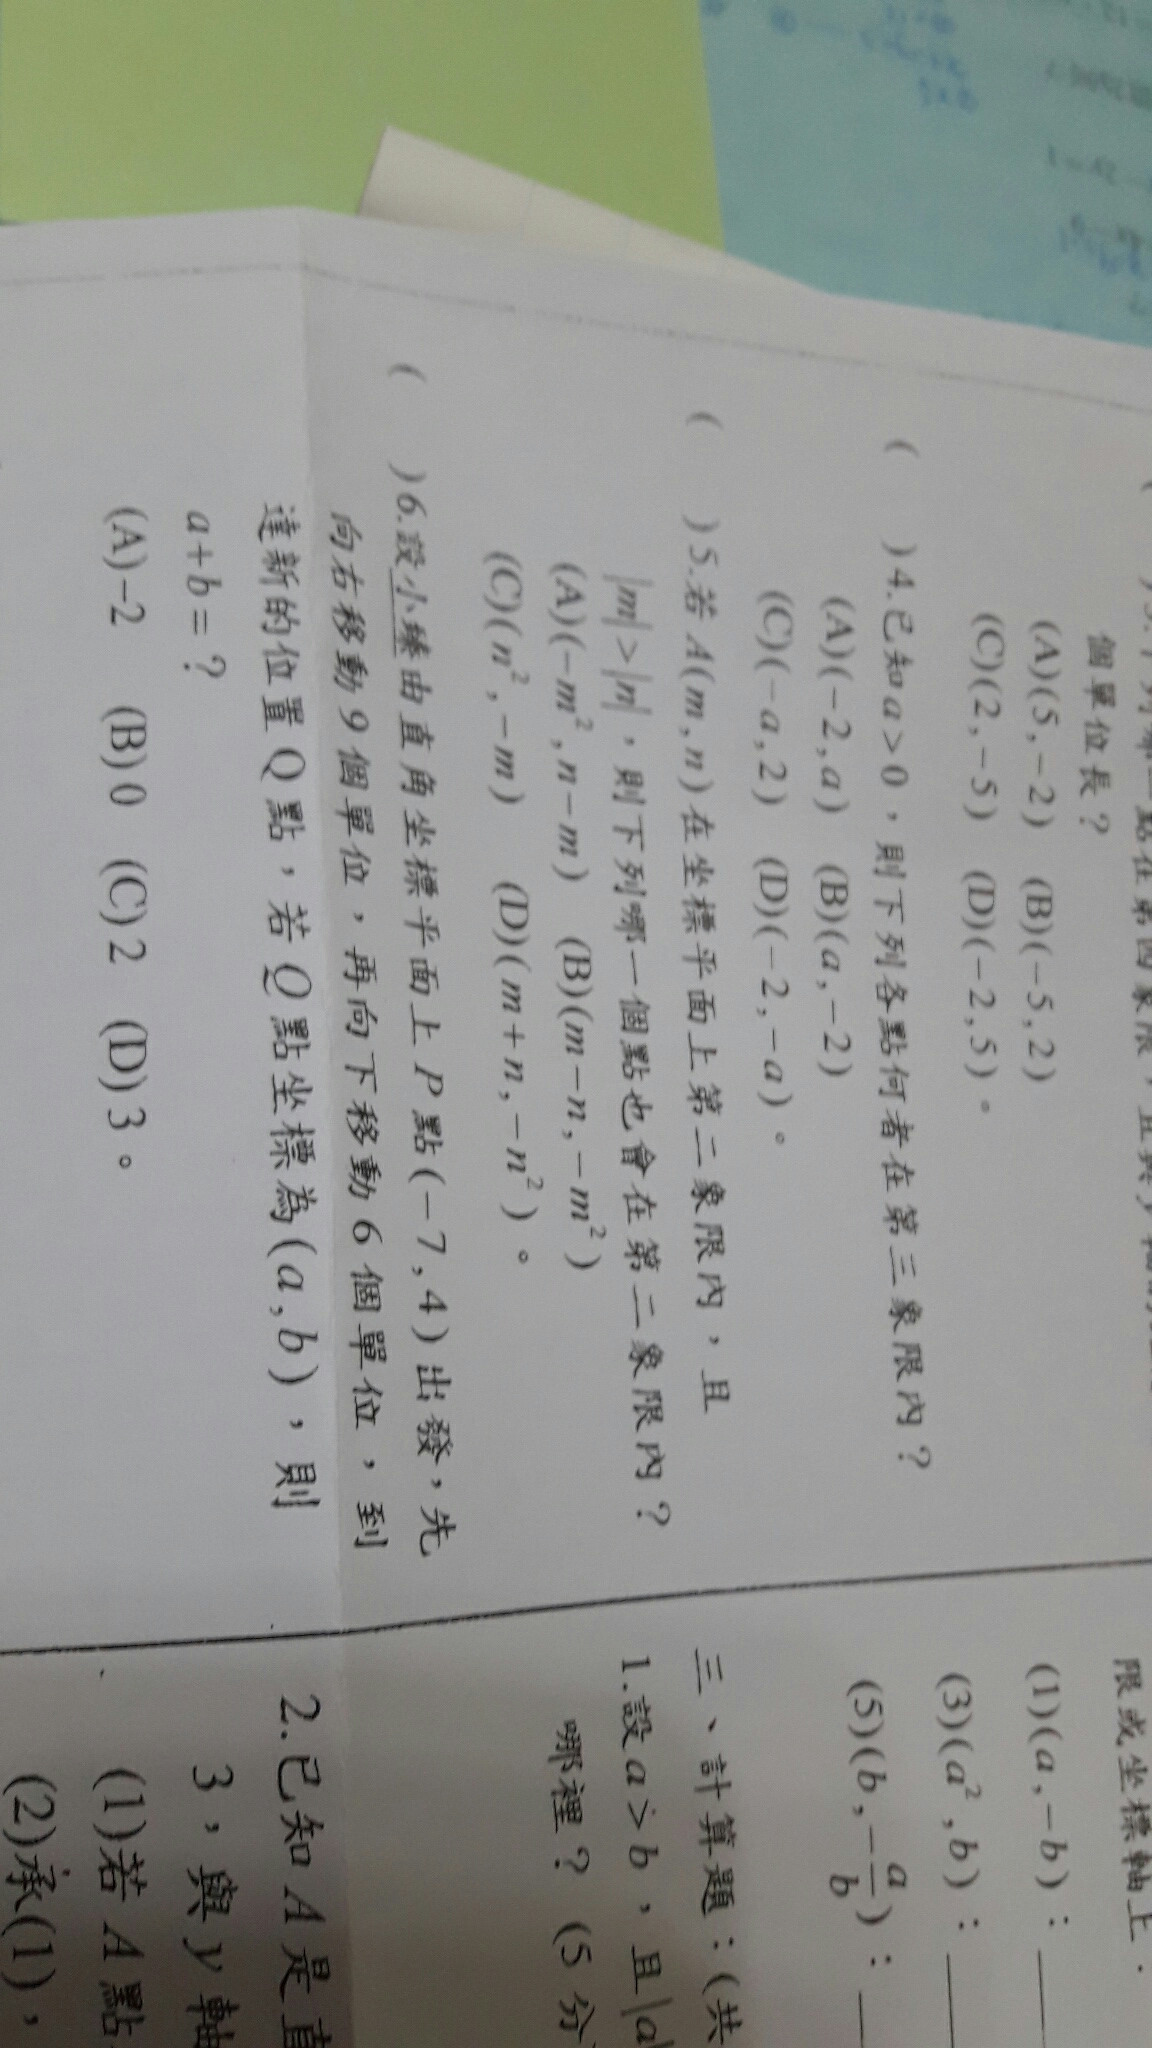 個單位長？
(A)(5,-2) (B)(-5,2)
(C)(2,-5) (D)(-2,5)。
( )4.已知a>0，則下列各點何者在第三象限內？
(A)(-2,a) (B)(a,-2)
(C)(-a,2) (D)(-2,-a)。
( )5.若A(m,n)在坐標平面上第二象限內，且
|m|>|n|，則下列哪一個點也會在第二象限內？
(A)(-m²,n-m) (B)(m-n,-m²)
(C)(n²,-m) (D)(m+n,-n²)。
( )6.設小緣由直角坐標平面上P點(-7,4)出發，先
向右移動9個單位，再向下移動6個單位，到
達新的位置Q點，若Q點坐標為(a,b)，則
a+b=？
(A)-2 (B)0 (C)2 (D)3。
限或坐標軸上．
(1)(a,-b)：
(3)(a²,b)：
(5)(b,-a/b)：
三、計算題：(共
1.設a>b，且|a|
哪裡？(5分
2.已知A是直
3，與y軸
(1)若A點
(2)承(1)，